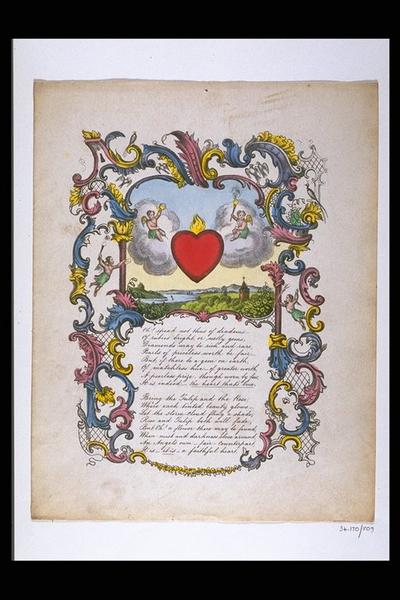 Oh! speak not thus of diadems
Of rubies bright or costly gems,
Diamonds may be rich and rare
Pearls of priceless worth be fair
But if there is a gem on earth
Of matchless hue, of greater worth
A peerless prize though worn by few
It is indeed — the heart that's true.
Bring the Tulip and the Rose
Where each tinted beauty glows
Let the storm cloud fling a shade,
Rose and Tulip both will fade
But Oh! a flower there may be found,
When mist and darkness close around
An Angels own fair counterpart
It is — it is — a faithful heart
34.170/509